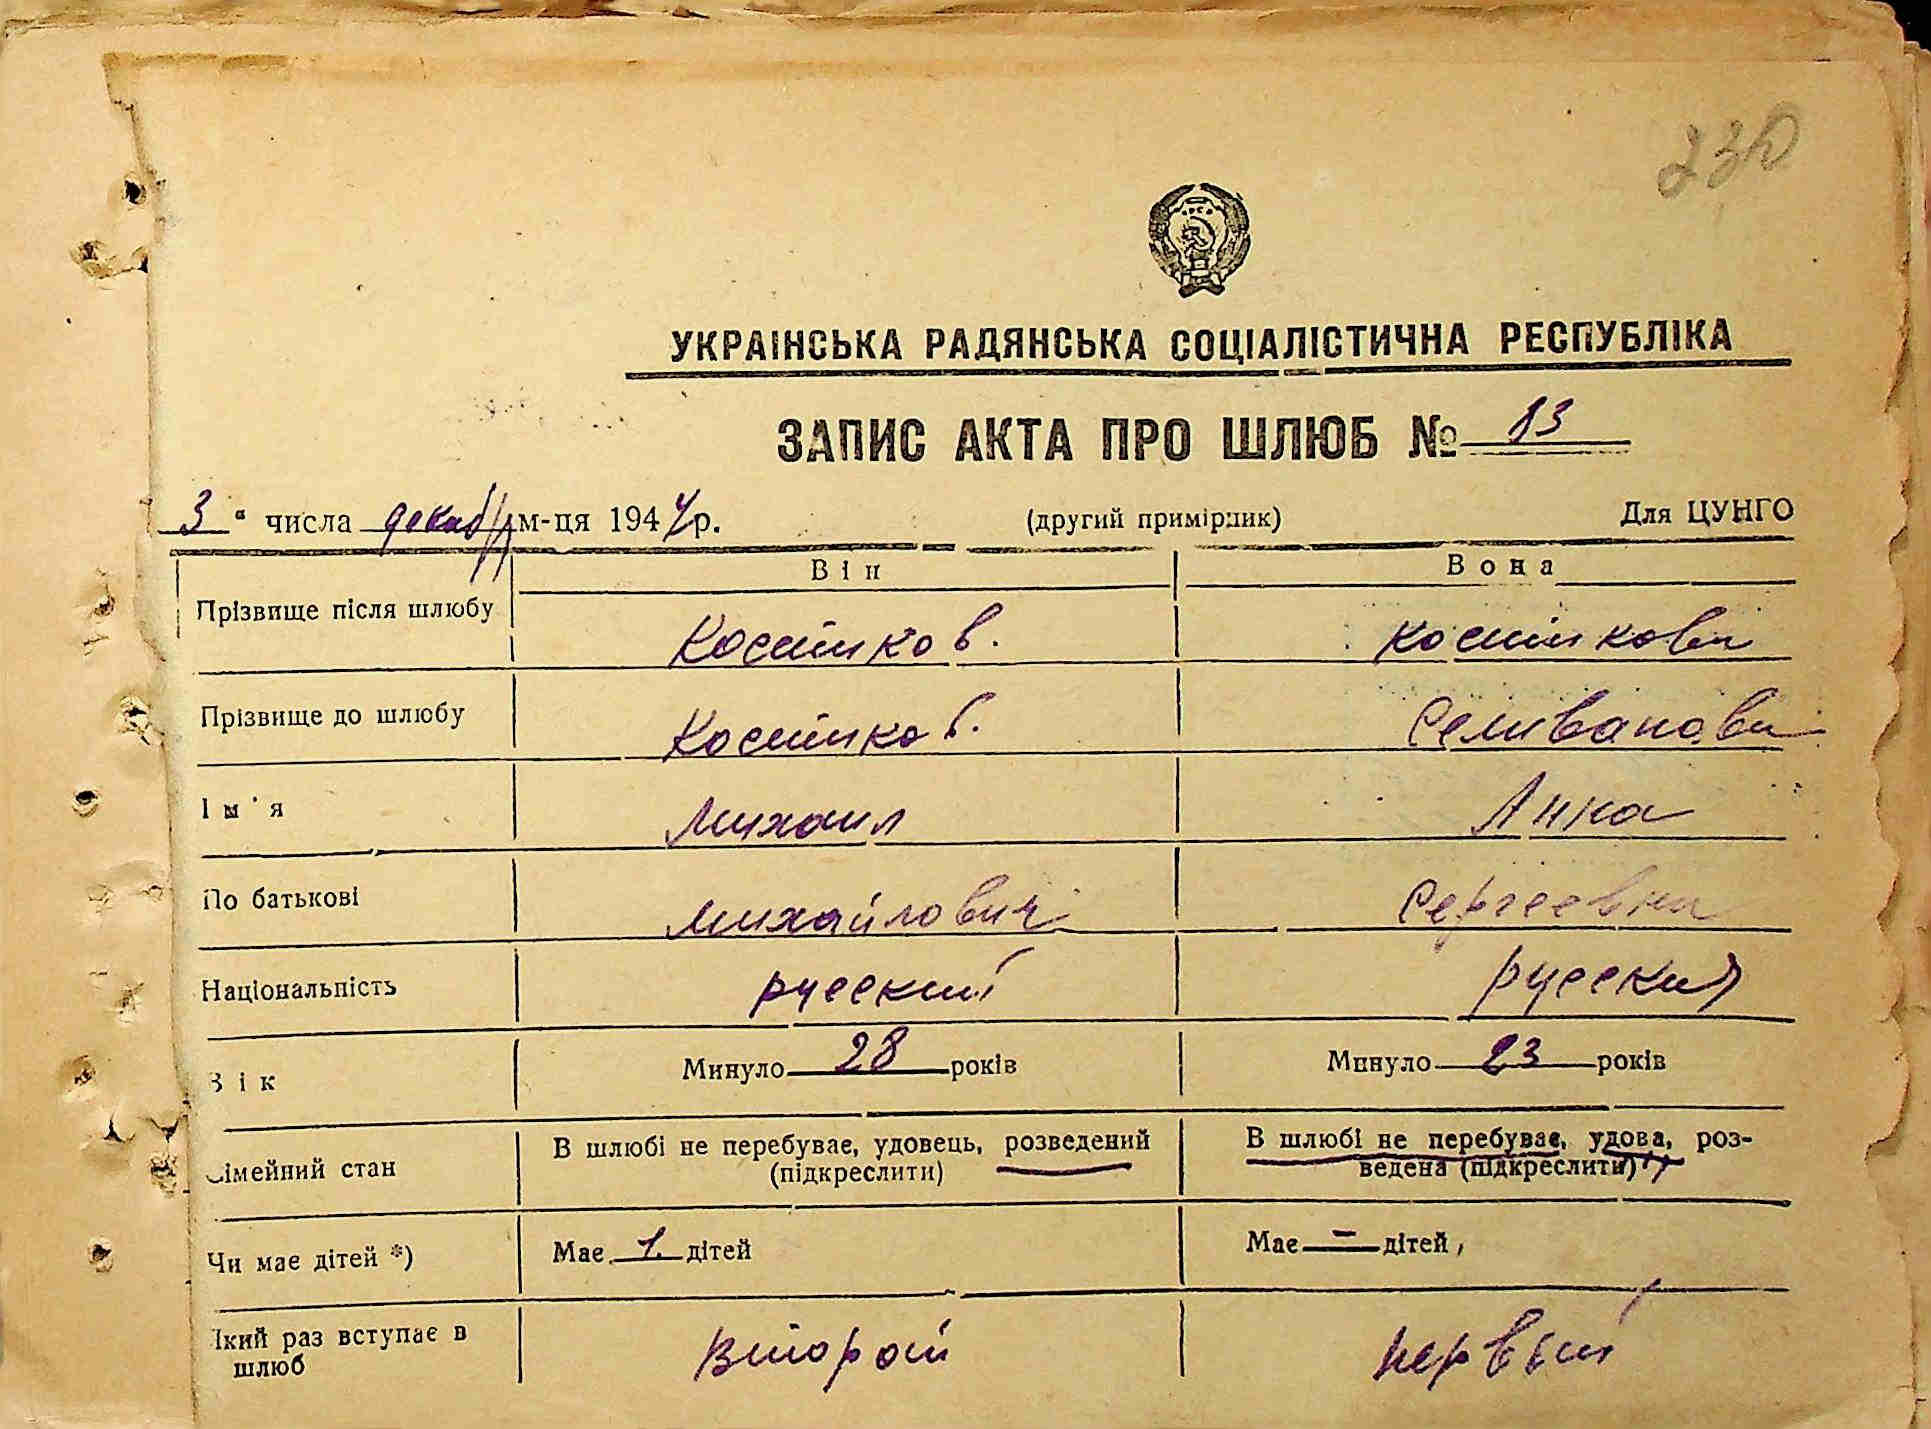 230
УКРАІНСЬКА РАДЯНСЬКА СОЦІАЛІСТИЧНА РЕСПУБЛІКА
ЗАПИС АКТА ПРО ШЛЮБ № 13
3 " числа декабр м-ця 1944 р. (другий примірник) Для ЦУНГО
Він Вона
Прізвище після шлюбу Костиков. Костикова
Прізвище до шлюбу Костиков. Селиванова
Ім'я Михаил Анна
По батькові Михайлович Сергеевна
Національність русский русския
Вік Минуло 28 років Минуло 23 років
Сімейний стан В шлюбі не перебуває, удовець, розведений (підкреслити) В шлюбі не перебуває, удова, роз-
ведена (підкреслити)
Чи має дітей *) Має 1. дітей Має — дітей,
Який раз вступає в шлюб второй первый